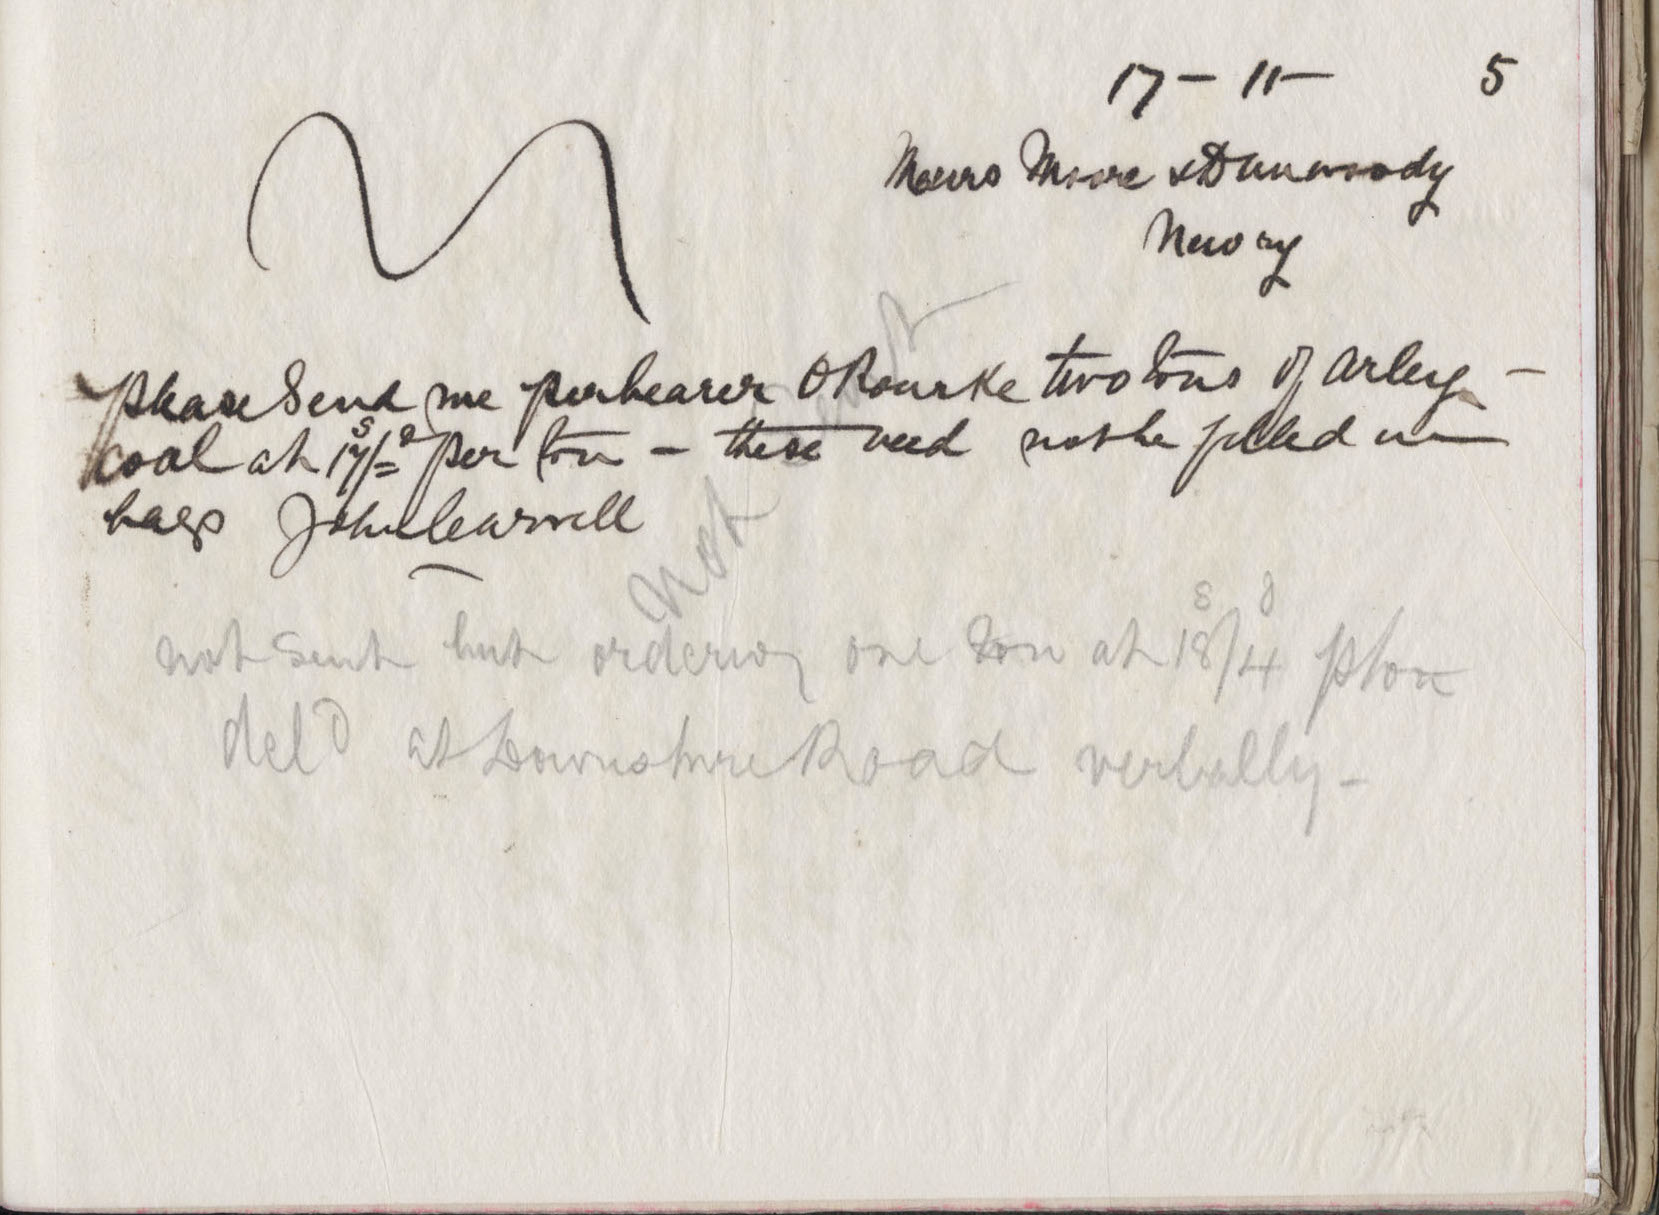 17 - 11 - 5
Messrs Moore & Dunwoody
Newry
please send me per bearer O Rourke two tons of Arley -
coal at 17s/=d per ton - these need not be filled in
bags John
not sent
not sent but ordering one ton at 18s/4d p ton
deld at Downshire Road verbally -